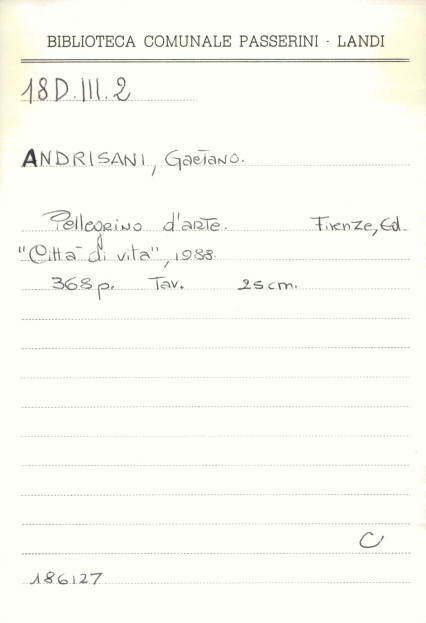 BIBLIOTECA COMUNALE PASSERINI - LANDI
18D.III.2
ANDRISANI, Gaetano.
Pellegrino d'arte. Firenze, Ed.
"Città di vita", 1988.
368 p. Tav. 25 cm.
C
186127